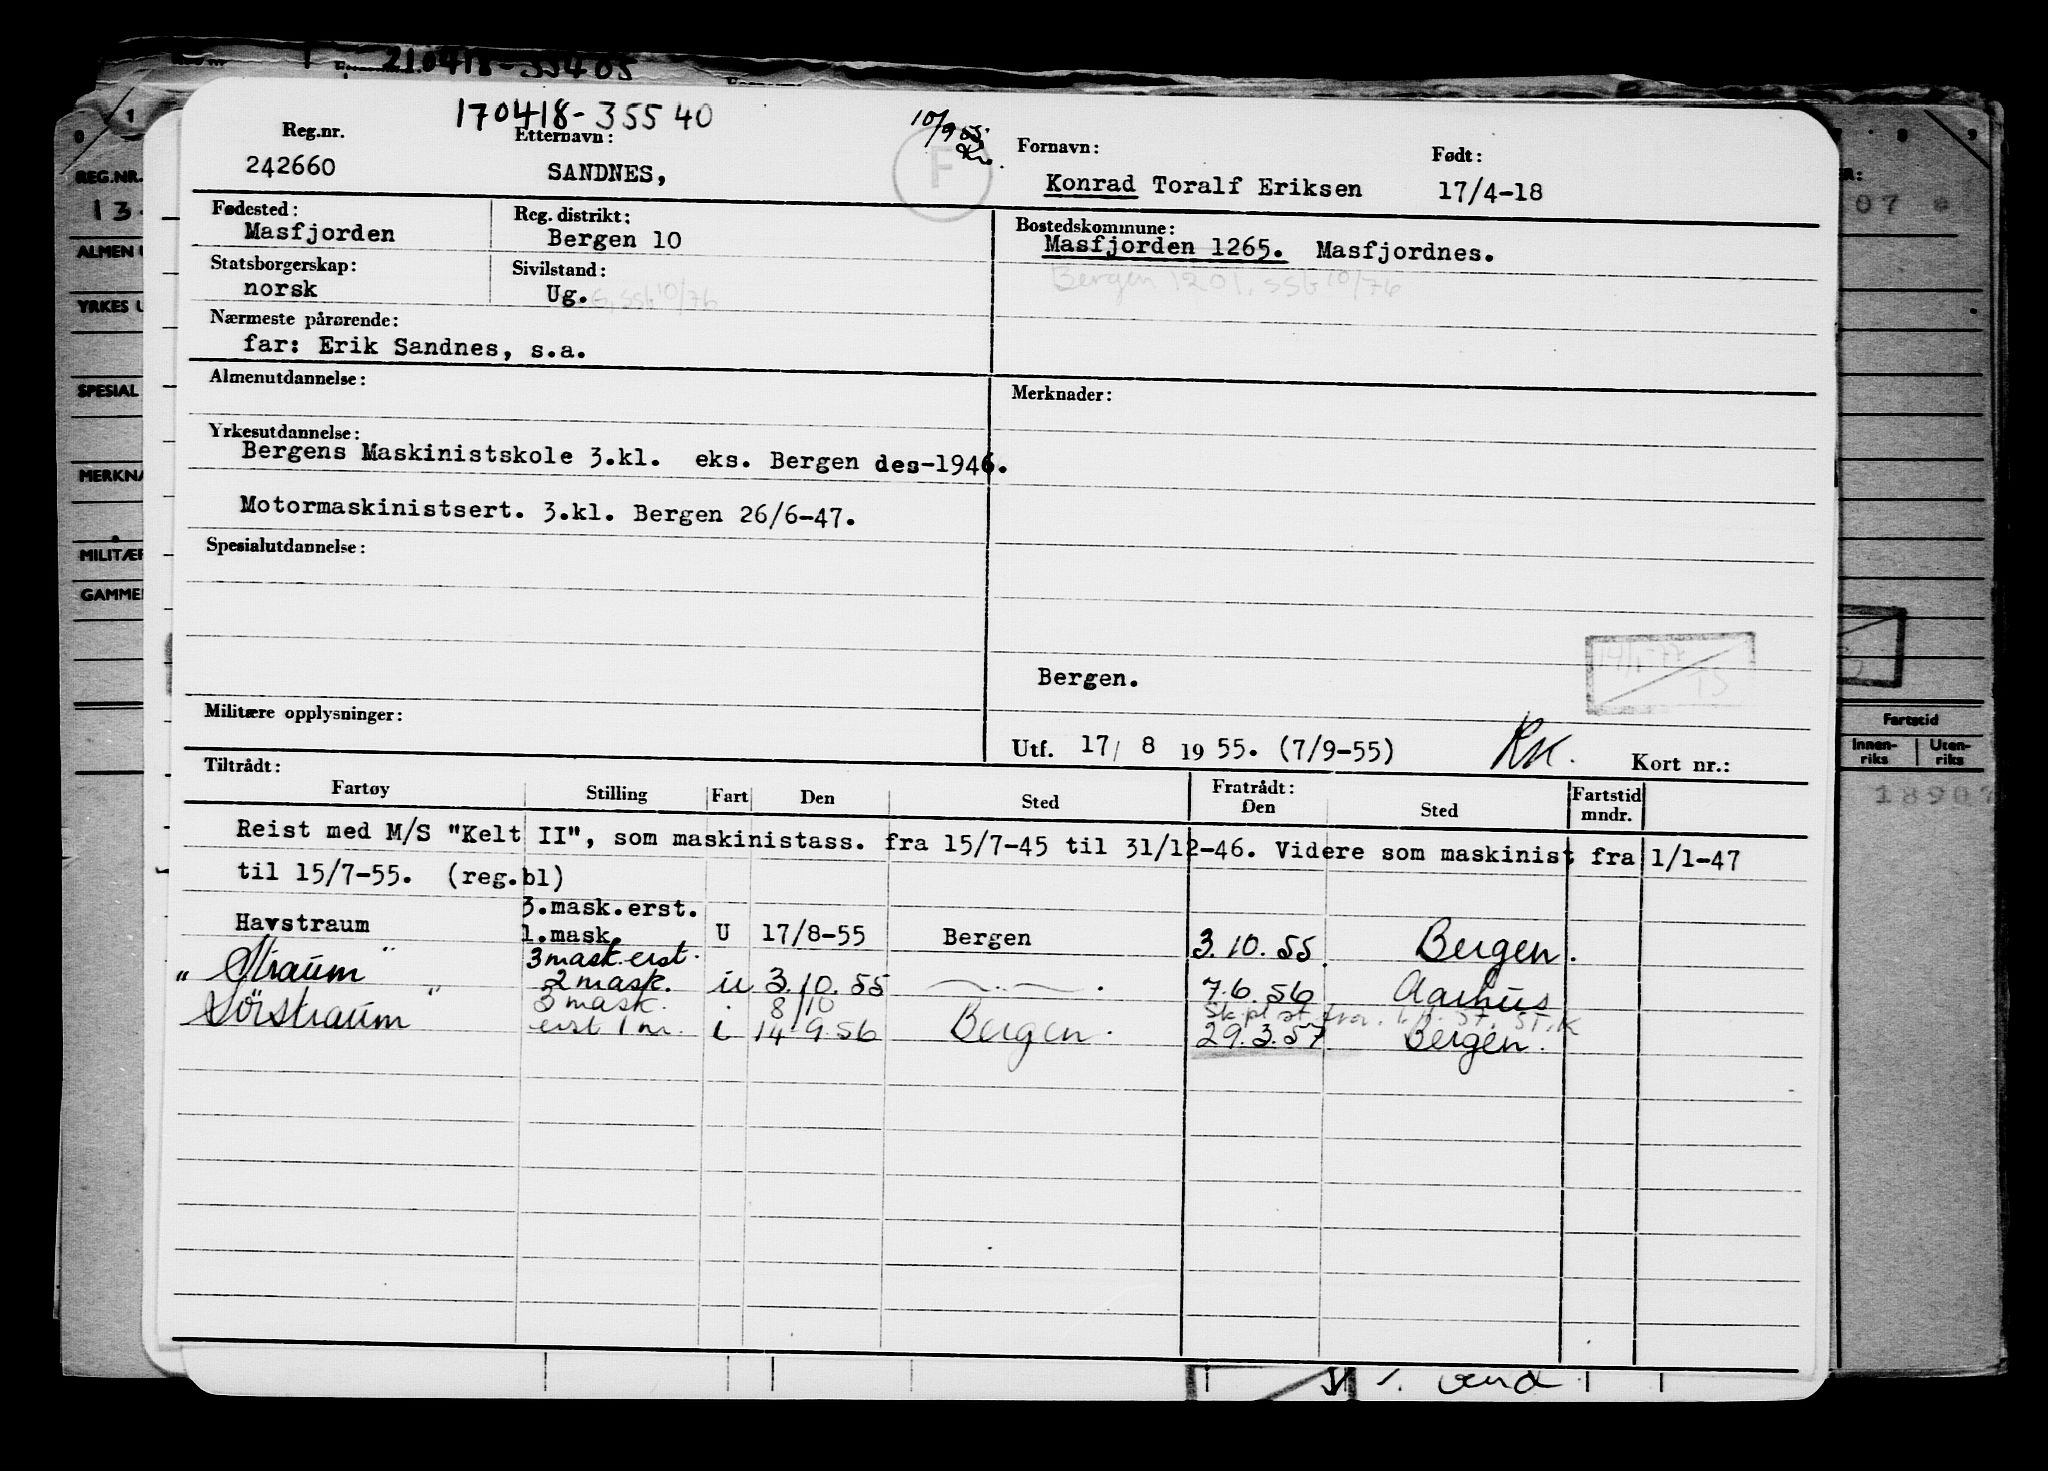 210418-35405
170418-35540
10/9 55
Reg.nr. Etternavn: Fornavn: Født:
242660 SANDNES, F Konrad Toralf Eriksen 17/4-18
Fødested: Reg. distrikt: Bostedskommune:
Masfjorden Bergen 10 Masfjorden 1265. Masfjordnes.
Statsborgerskap: Sivilstand: Bergen 1201, SSb 10/76
norsk Ug. G, SSb 10/76
Nærmeste pårørende:
far: Erik Sandnes, s.a.
Almenutdannelse: Merknader:
Yrkesutdannelse:
Bergens Maskinistskole 3.kl. eks. Bergen des-1946.
Motormaskinistsert. 3.kl. Bergen 26/6-47.
Spesialutdannelse:
Bergen.
Militære opplysninger:
Utf. 17/ 8 1955. (7/9-55) RK. Kort nr.:
Tiltrådt: Fratrådt:
Fartøy Stilling Fart Den Sted Den Sted Fartstid mndr.
Reist med M/S "Kelt II", som maskinistass. fra 15/7-45 til 31/12-46. Videre som maskinist fra 1/1-47
til 15/7-55. (reg.bl)
3.mask.erst.
Havstraum 1.mask. U 17/8-55 Bergen 3.10.55. Bergen.
3 mask.erst.
" Straum " 2 mask. u 3.10.55 — " — . 7.6.56 Aarhus
3 mask. 8/10
Sørstraum " erst 1 m. i 14 9 56 Bergen. 29.3.57 Bergen.
REG.NR.
13
ALMEN U
YRKES U
SPESIAL
MERKNA
MILITÆR
GAMMEL
07
Fartstid
Innen-riks Uten-riks
18907